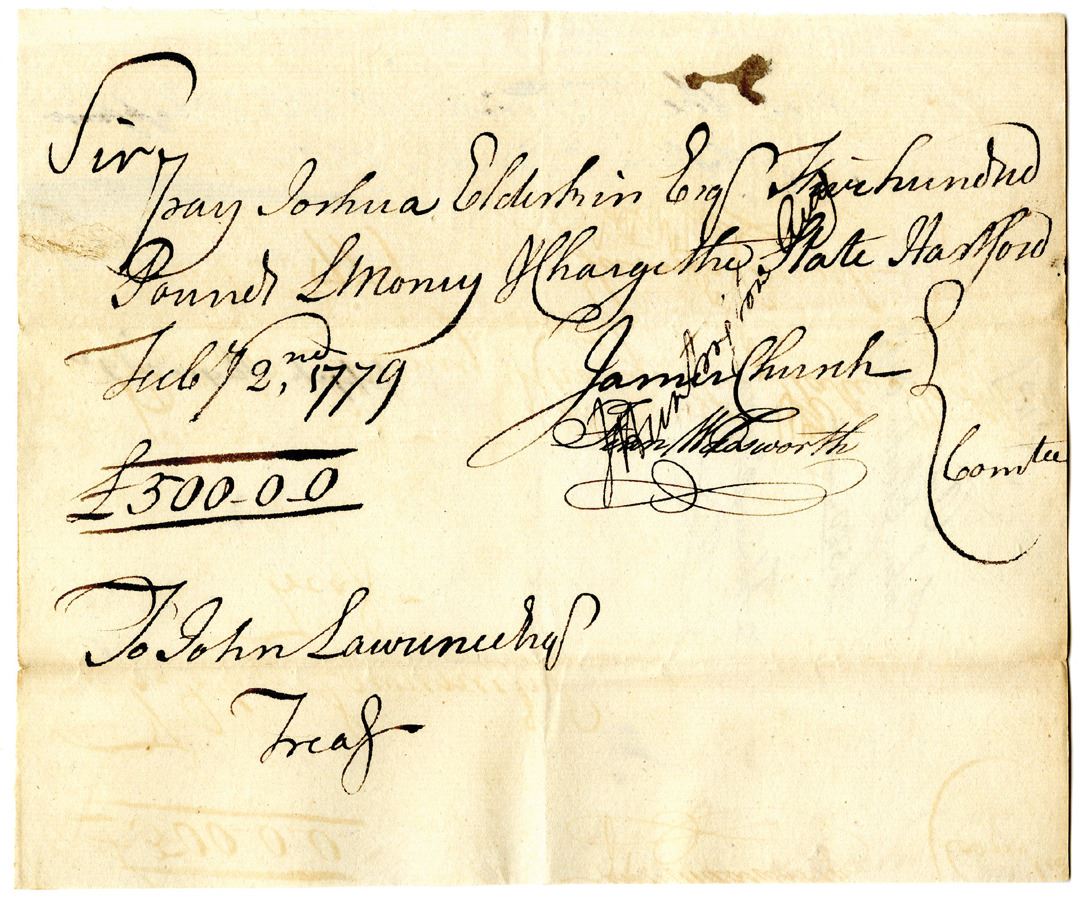 Sir
Pay Joshua Elderkin Esqr Five hundred
Pounds L Money & Charge the State Hartford
Feby 2,nd 1779
James Church
Wadsworth
Comtee
£500-0-0
J Huntington Junr
To John Lawrence Esqr
Treasr